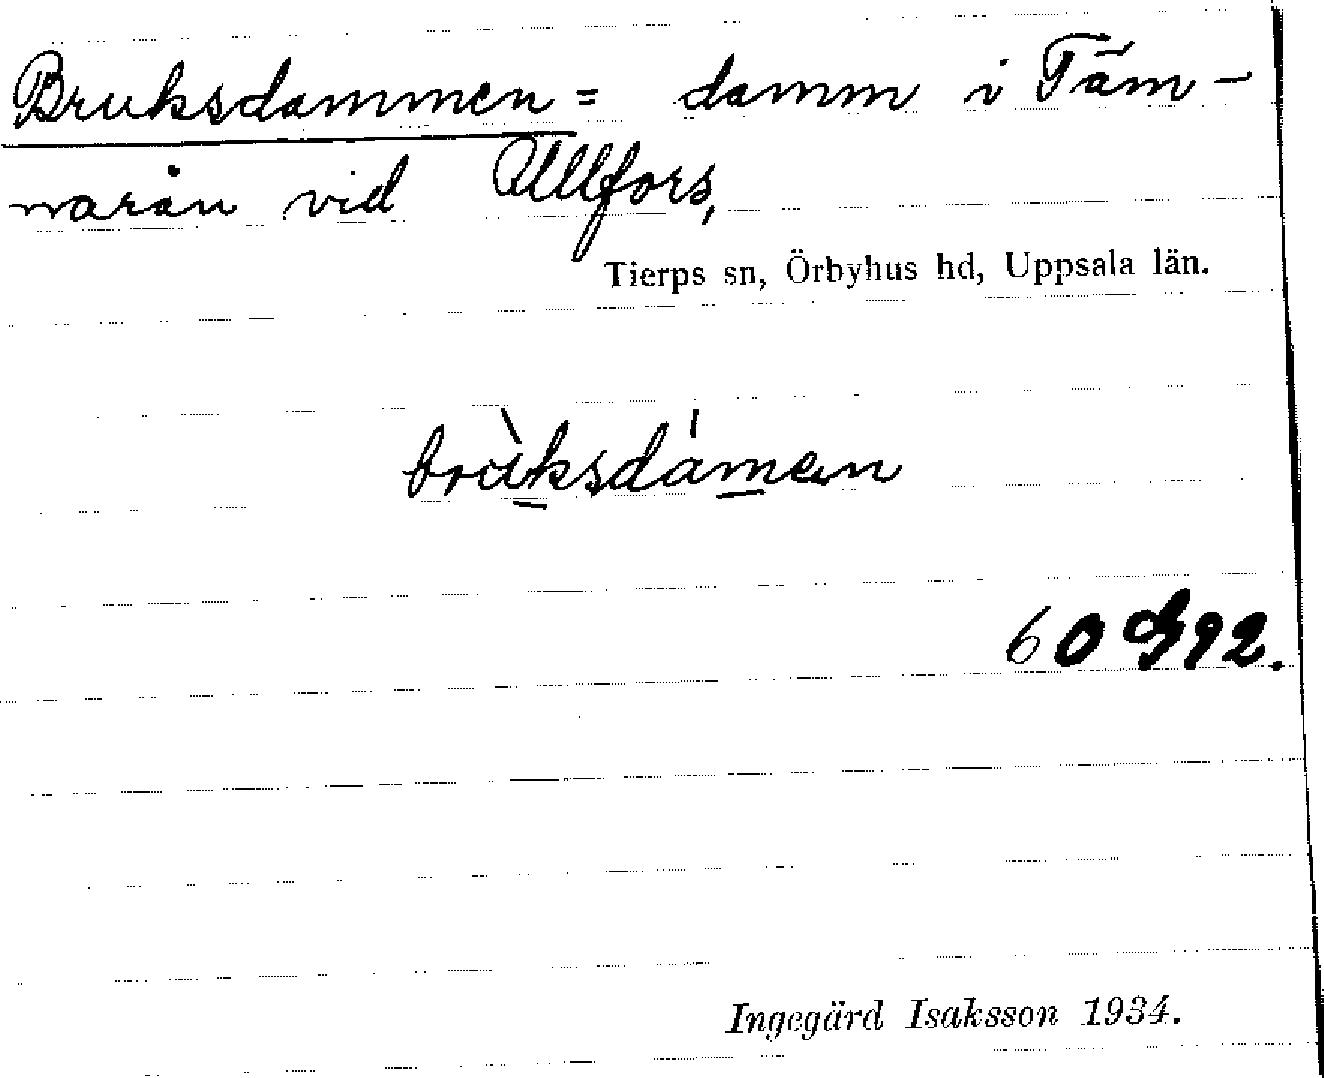 Bruksdammen = damm i Täm-
narån vid Ullfors,
Tierps sn, Örbyhus hd, Uppsala län.
brùksdámen
60
Ingegärd Isaksson 1934.